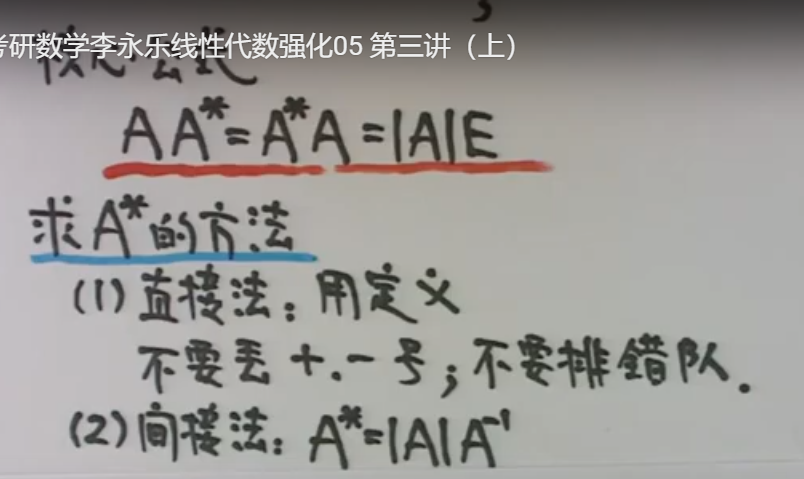 考研数学李永乐线性代数强化05 第三讲（上）
核心公式
AA*=A*A=|A|E
求A*的方法
(1)直接法：用定义
不要丢+.-号；不要排错队.
(2)间接法：A*=|A|A⁻¹